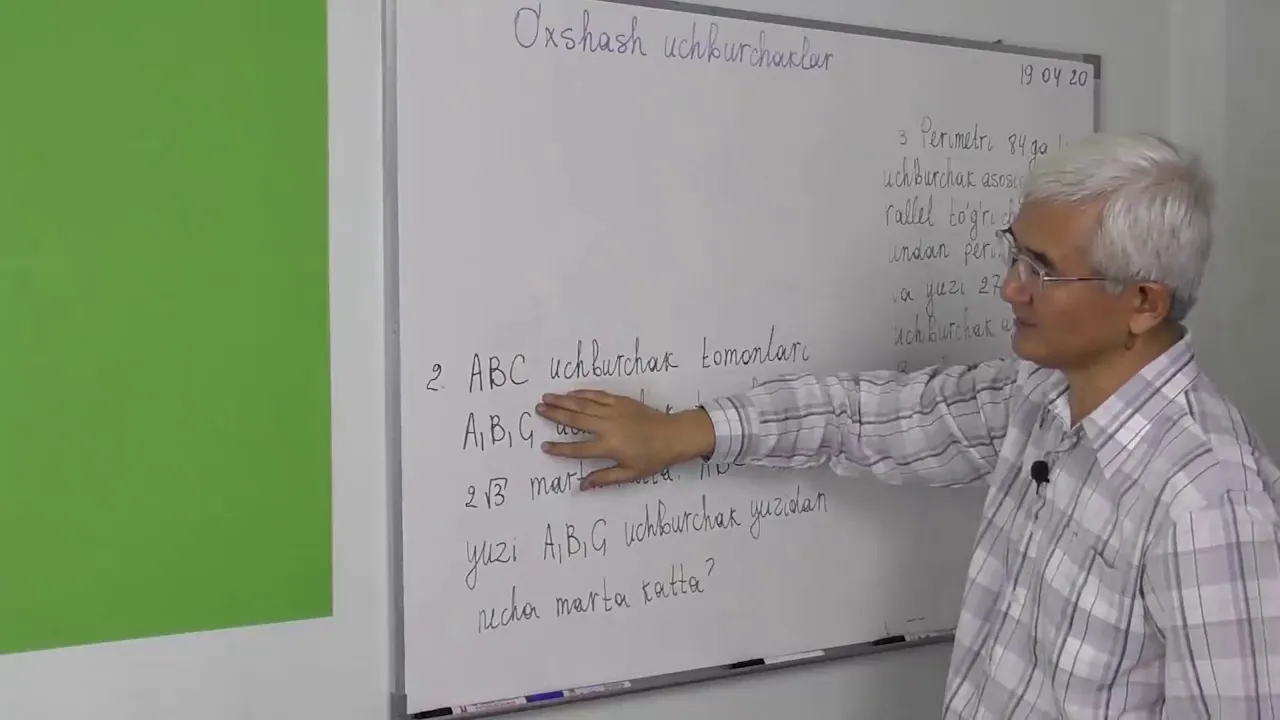 O'xshash uchburchaklar
19 04 20
3 Perimetri 84 ga
uchburchak asosi
rallel to'g'ri
undan peri
va yuzi 27
uchburchak a
2. ABC uchburchak tomonlari
A₁B₁C₁
2√3 marta katta. ABC
yuzi A₁B₁C₁ uchburchak yuzidan
necha marta katta?